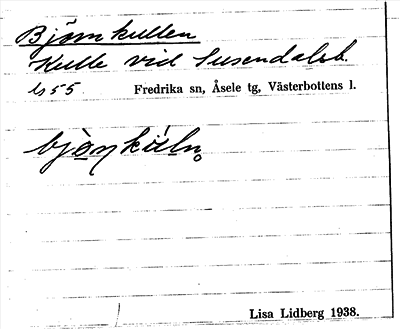 Björnkullen
Kulle vid Susendalsb.
b 55 Fredrika sn, Åsele tg, Västerbottens l.
Lisa Lidberg 1938.